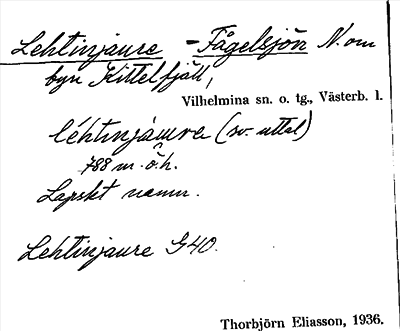 Lehtinjaure - Fågelsjön N. om
byn Kittelfjäll,
Vilhelmina sn. o. tg., Västerb. l.
léhtinjáuvre (sv. uttal)
788 m. ö. h.
Lapskt namn.
Lehtinjaure G40.
Thorbjörn Eliasson, 1936.